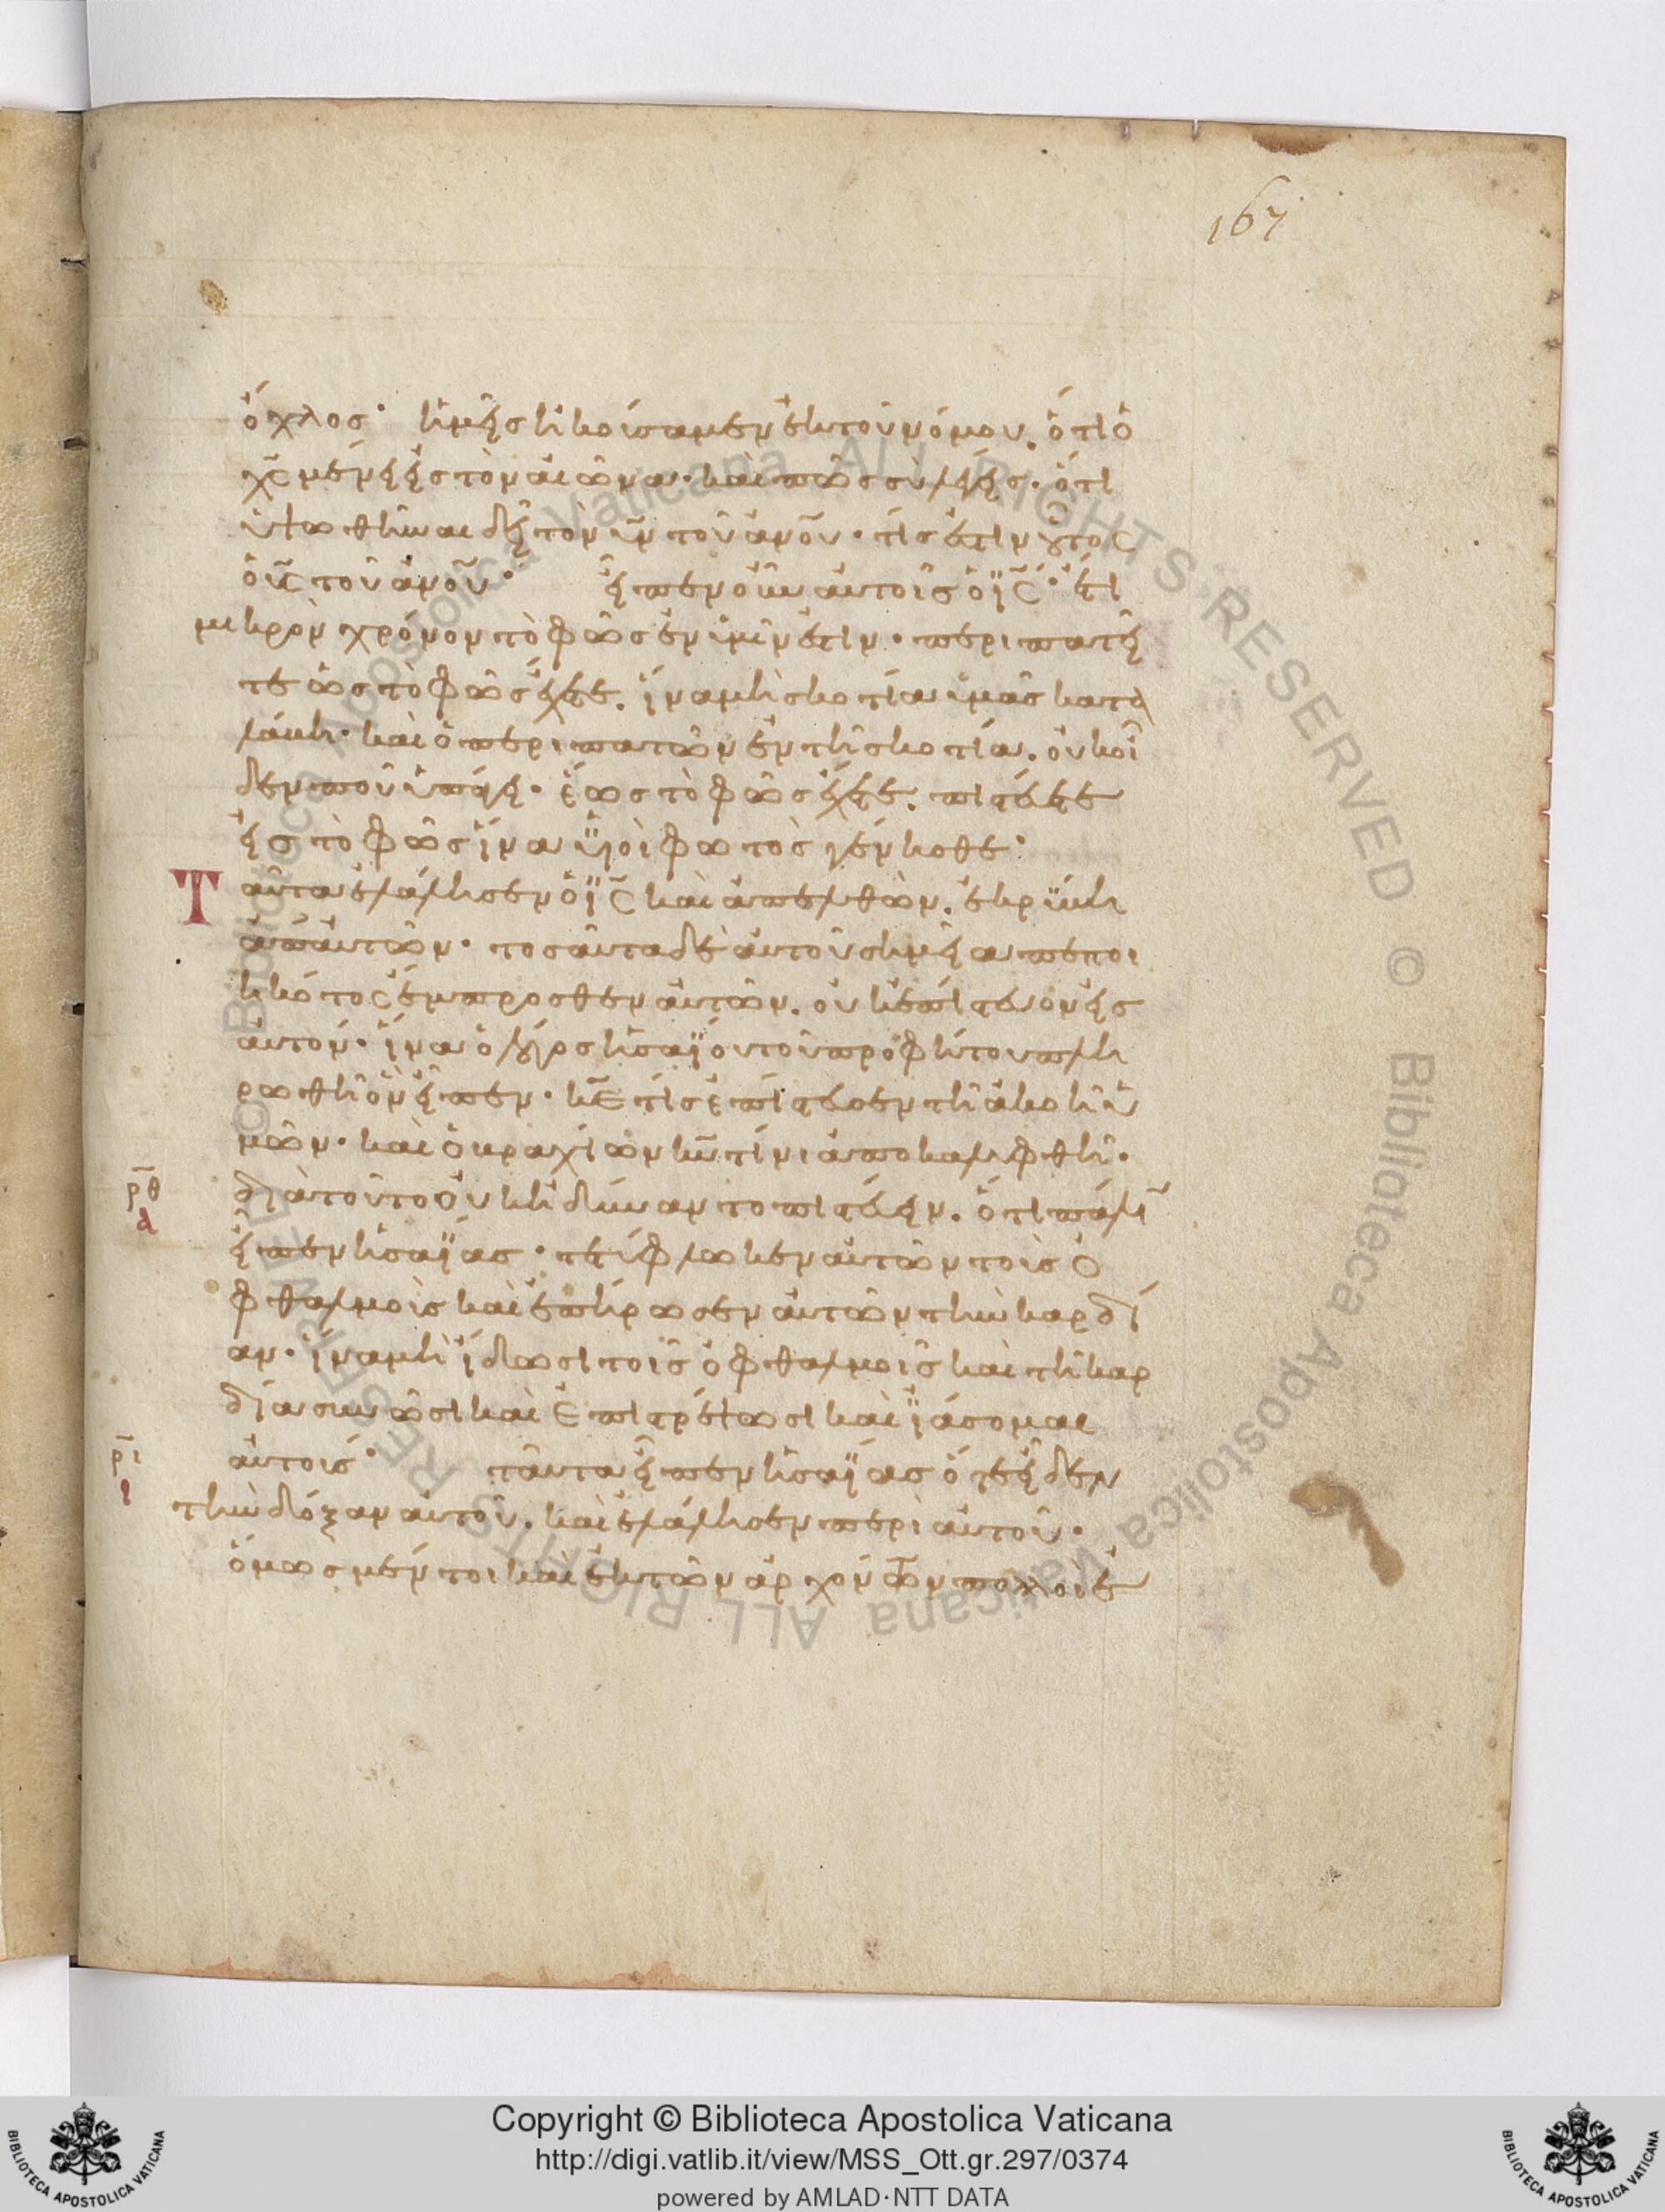 167
ὄχλος· ἡμεῖς ἠκούσαμεν ἐκ τοῦ νόμου. ὅτι ὁ
χς μένει εἰς τὸν αἰῶνα· καὶ πῶς σὺ λέγεις· ὅτι
ὑψωθῆναι δεῖ τὸν υν τοῦ ανου· τίς ἐστιν οὗτος
ὁ υς τοῦ ανου· εἶπεν οὖν αὐτοῖς ὁ ις· ἔτι
μικρὸν χρόνον τὸ φῶς ἐν ὑμῖν ἐστιν· περιπατεῖ
τε ὡς τὸ φῶς ἔχετε. ἵνα μὴ σκοτία ὑμᾶς κατα
λάβη· καὶ ὁ περιπατῶν ἐν τῆ σκοτία. οὐκ οἶ
δεν ποῦ ὑπάγει· ἕως τὸ φῶς ἔχετε. πιστεύετε
εἰς τὸ φῶς ἵνα υἱοὶ φωτὸς γένησθε·
Ταῦτα ἐλάλησεν ὁ ις καὶ ἀπελθὼν. ἐκρύβη
ἀπ' αὐτῶν· τοσαῦτα δὲ αὐτοῦ σημεῖα πεποι
ηκότος ἔμπροσθεν αὐτῶν. οὐκ ἐπίστευον εἰς
αὐτόν· ἵνα ὁ λόγος ἠσαΐου τοῦ προφήτου πλη
ρωθῆ ὃν εἶπεν· κε τίς ἐπίστευσεν τῆ ἀκοῆ ἡ
μῶν· καὶ ὁ βραχίων κυ τίνι ἀπεκαλύφθη·
ρθ
α
διὰ τοῦτο οὐκ ἠδύναντο πιστεύειν. ὅτι πάλιν
εἶπεν ἠσαΐας· τετύφλωκεν αὐτῶν τοὺς ὀ
φθαλμοὺς καὶ ἐπήρωσεν αὐτῶν τὴν καρδί
αν· ἵνα μὴ ἴδωσι τοῖς ὀφθαλμοῖς καὶ τῆ καρ
δία συνῶσι καὶ ἐπιστρέψωσι καὶ ἰάσομαι
ρι
ι
αὐτούς· ταῦτα εἶπεν ἠσαΐας ὅτε εἶδεν
τὴν δόξαν αὐτοῦ. καὶ ἐλάλησεν περὶ αὐτοῦ·
ὅμως μέντοι καὶ ἐκ τῶν ἀρχόντων πολλοὶ ἐ
Copyright © Biblioteca Apostolica Vaticana
http://digi.vatlib.it/view/MSS_Ott.gr.297/0374
powered by AMLAD·NTT DATA
BIBLIOTECA APOSTOLICA VATICANA
BIBLIOTECA APOSTOLICA VATICANA
© Biblioteca Apostolica Vaticana ALL RIGHTS RESERVED © Biblioteca Apostolica Vaticana ALL RIGHTS RESERVED